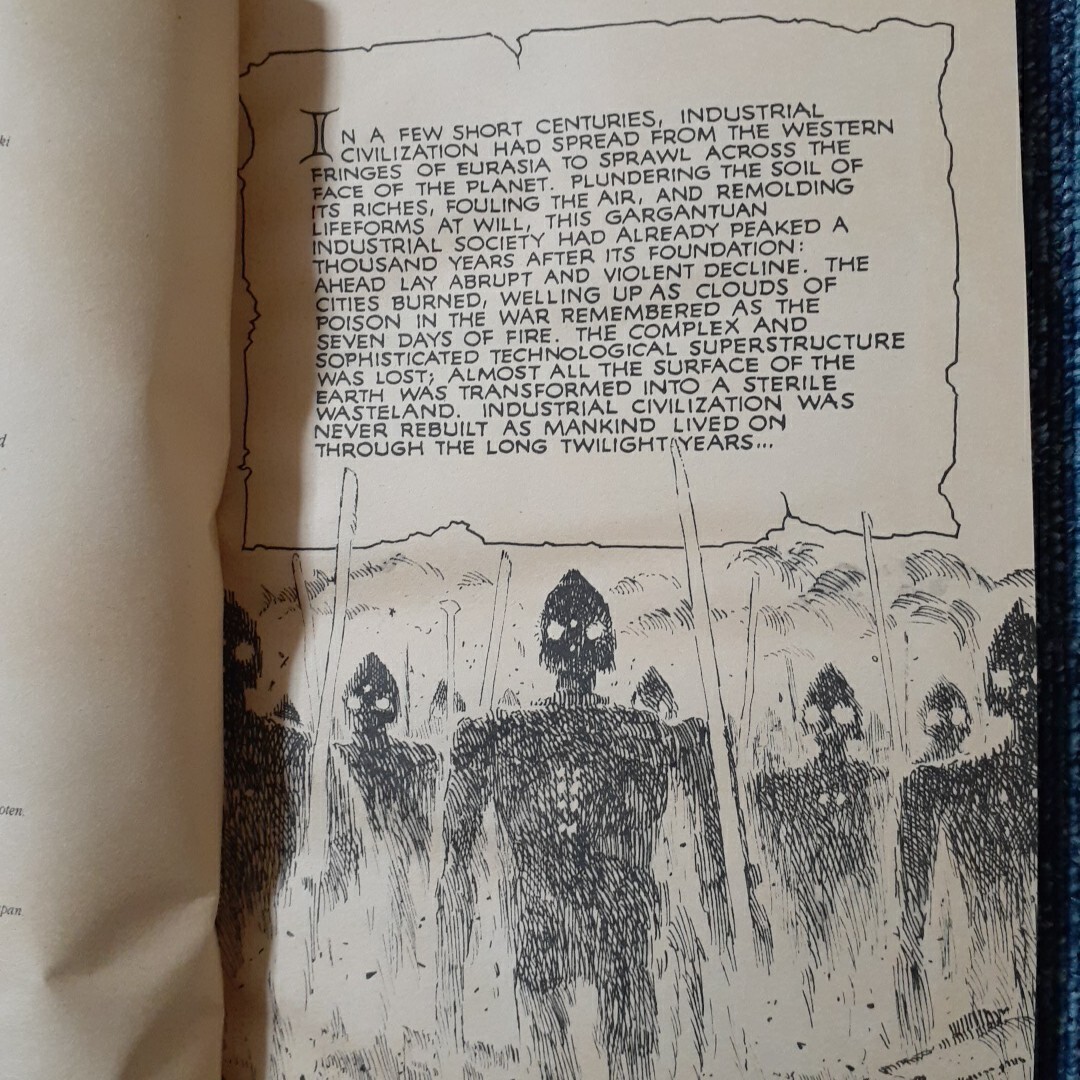 ki
d
oten.
pan.
IN A FEW SHORT CENTURIES, INDUSTRIAL
CIVILIZATION HAD SPREAD FROM THE WESTERN
FRINGES OF EURASIA TO SPRAWL ACROSS THE
FACE OF THE PLANET. PLUNDERING THE SOIL OF
ITS RICHES, FOULING THE AIR, AND REMOLDING
LIFEFORMS AT WILL, THIS GARGANTUAN
INDUSTRIAL SOCIETY HAD ALREADY PEAKED A
THOUSAND YEARS AFTER ITS FOUNDATION:
AHEAD LAY ABRUPT AND VIOLENT DECLINE. THE
CITIES BURNED, WELLING UP AS CLOUDS OF
POISON IN THE WAR REMEMBERED AS THE
SEVEN DAYS OF FIRE. THE COMPLEX AND
SOPHISTICATED TECHNOLOGICAL SUPERSTRUCTURE
WAS LOST; ALMOST ALL THE SURFACE OF THE
EARTH WAS TRANSFORMED INTO A STERILE
WASTELAND. INDUSTRIAL CIVILIZATION WAS
NEVER REBUILT AS MANKIND LIVED ON
THROUGH THE LONG TWILIGHT YEARS...